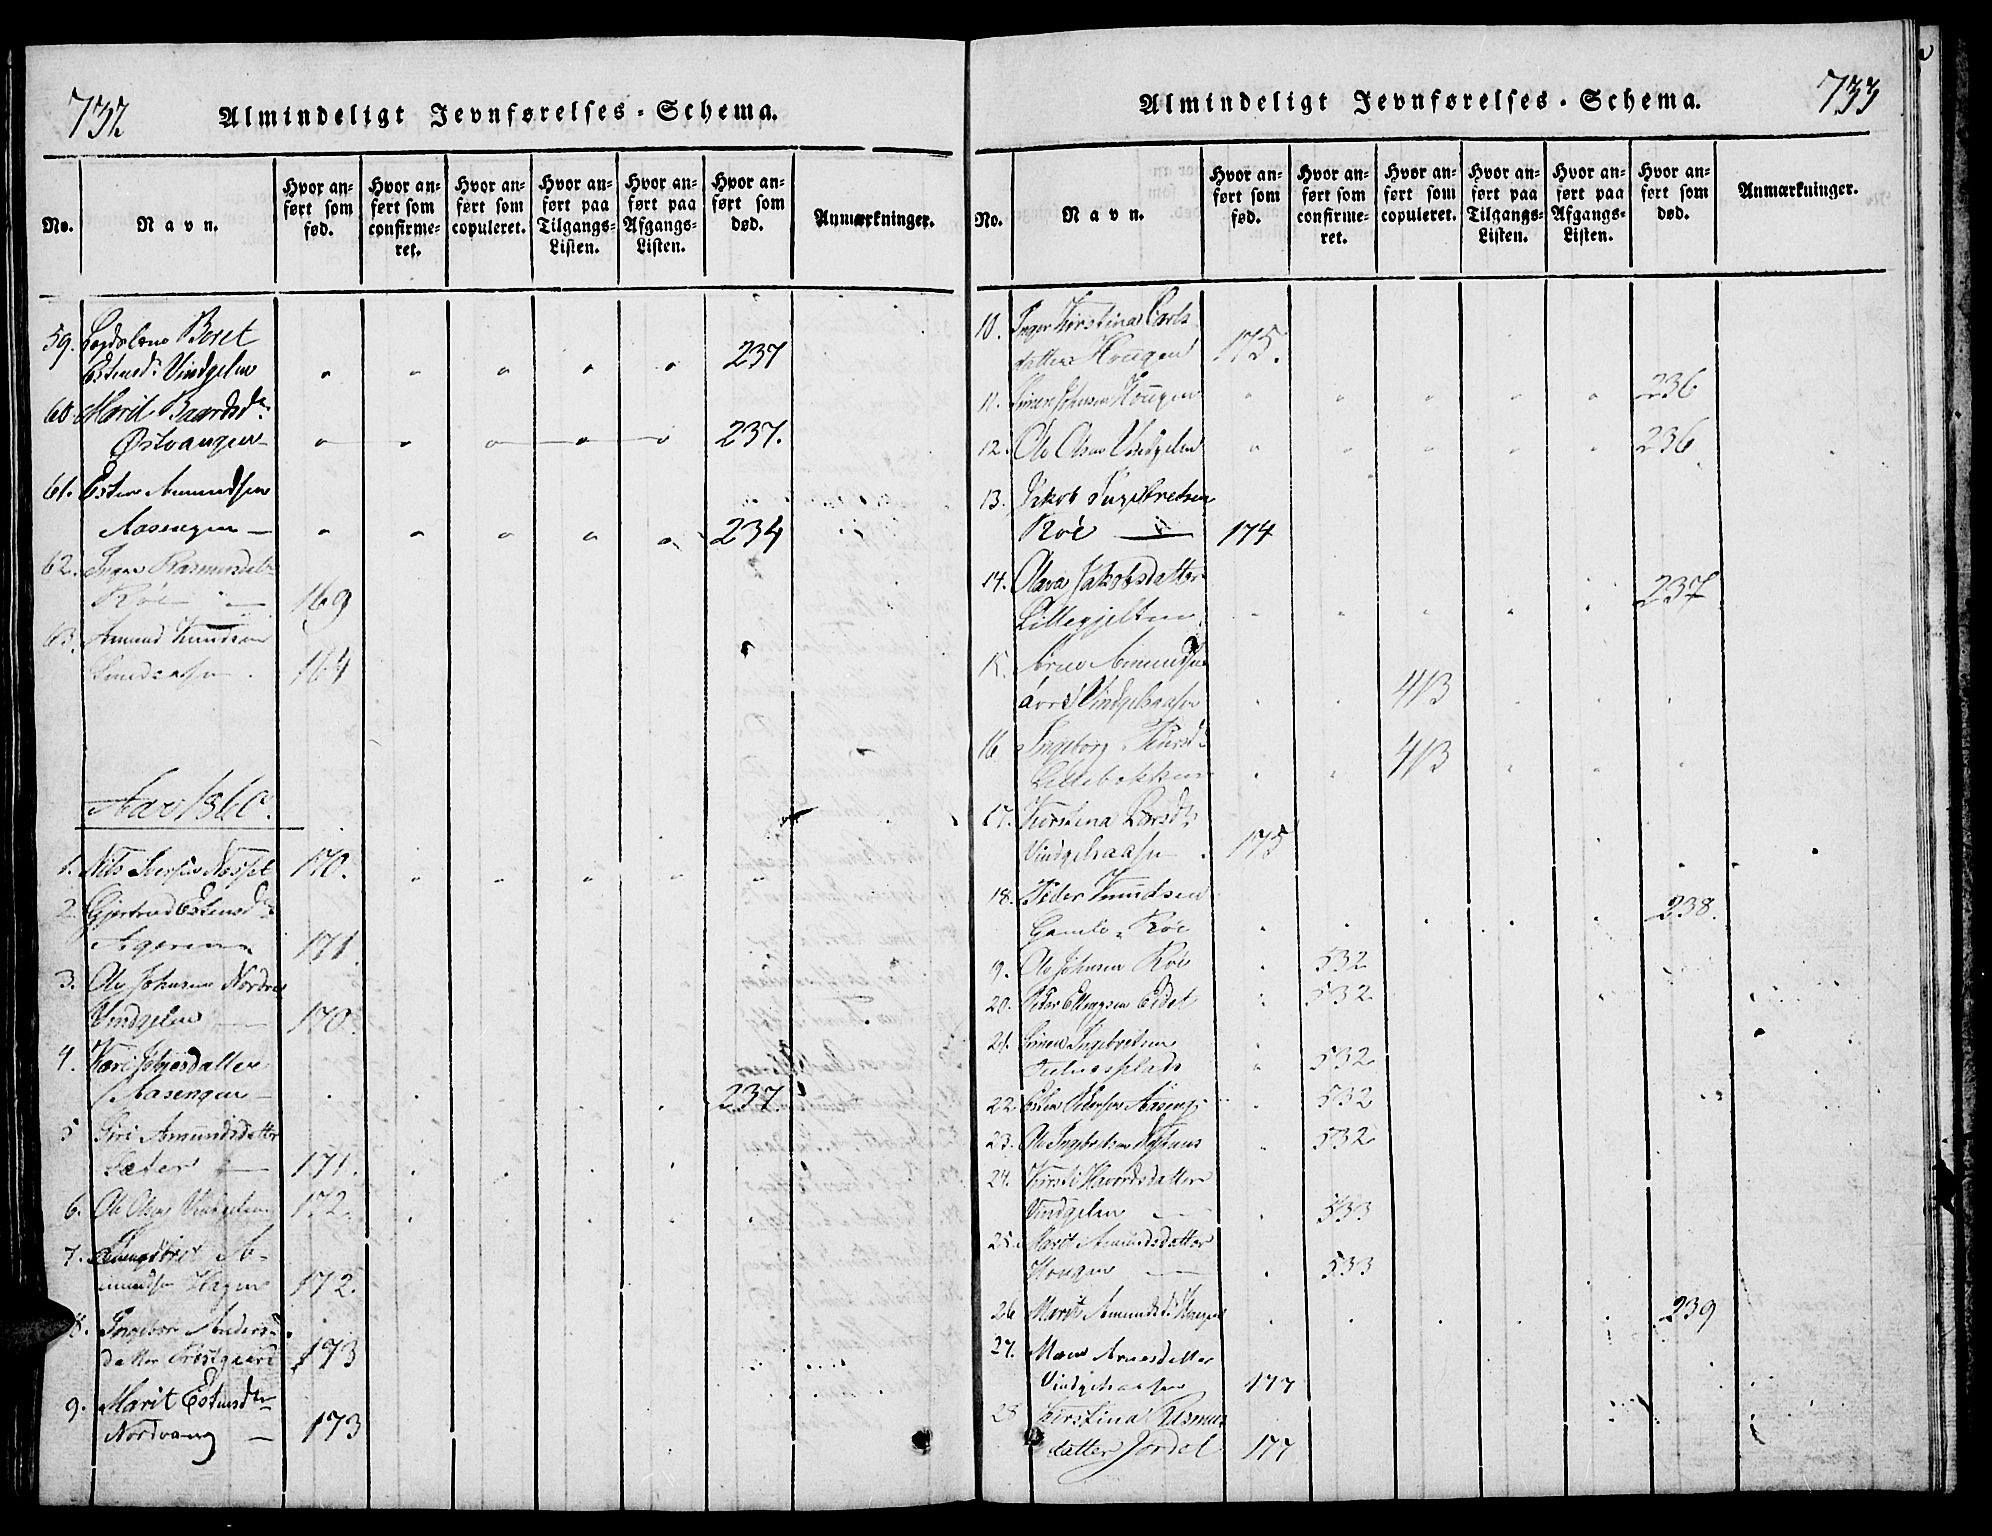 732
Almindeligt Jevnførelses-Schema.
No.
Navn.
Hvor anført som fød.
Hvor anført som confirmeret.
Hvor anført som copuleret.
Hvor anført paa Tilgangs-Listen.
Hvor anført paa Afgangs-Listen.
Hvor anført som død.
Anmærkninger.
59. Beret
Estensd. Vindgelen 237
60 Marit Baardsdr
Østvangen 237.
61. Esten Amundsen
Aasengen — 234
62. Inger Rasmusdtr
Røe — 169
63. Amund Knudsen
164
Aar 1860.
1. Nils Iversen Nesset 170.
2. Gjertrud Estensdr
171
3. Ole Johnsen Nordre
Vindgelen — 170.
4. Kari datter
Aasengen — 237
5 Siri Amundsdatter
Sæter — 171.
6. Ole Olsen Vindgelen 172.
7. Ingebret A-
mundsen Hagen 172.
8. Ingebor Anders-
datter 173
9. Marit Estensdtr
Nordvang — 173
Almindeligt Jevnførelses-Schema.
733
No.
Navn.
Hvor anført som fød.
Hvor anført som confirmeret.
Hvor anført som copuleret.
Hvor anført paa Tilgangs-Listen.
Hvor anført paa Afgangs-Listen.
Hvor anført som død.
Anmærkninger.
10. Inger Kirstina Carls
datter Hougen 175.
11. Simen Johnsen Hougen 236
12. Ole Olsen Vindgelen 236
13. Jakob Ingebretsen
Røe — 174
14. Olava Jakobsdatter
Lillegjelten 237
15. Arne Amundsen
Vindgelaasen 413
16 Ingeborg Pedersd.
Lillebakken 413
17. Kirstina Larsdtr
Vindgelaasen 175
18. Peder Knudsen
Gamle Røe 238.
9. Ole Johnsen Røe 532
20. Peder Eidet 532
21. Simen Ingebretsen
532
22 Esten Pedersen Aaseng 532
23. Ole Ingebretsen 532
24. Kirsti Havordsdatter
Vindgelen — 533
25. Marit Amundsdatter
Hougen — 533
26 Marit Amundsd. Hougen 239
27. Arnesdatter
Vindgelaasen 177
28 Kirstina Rasmus
datter Jordet 177